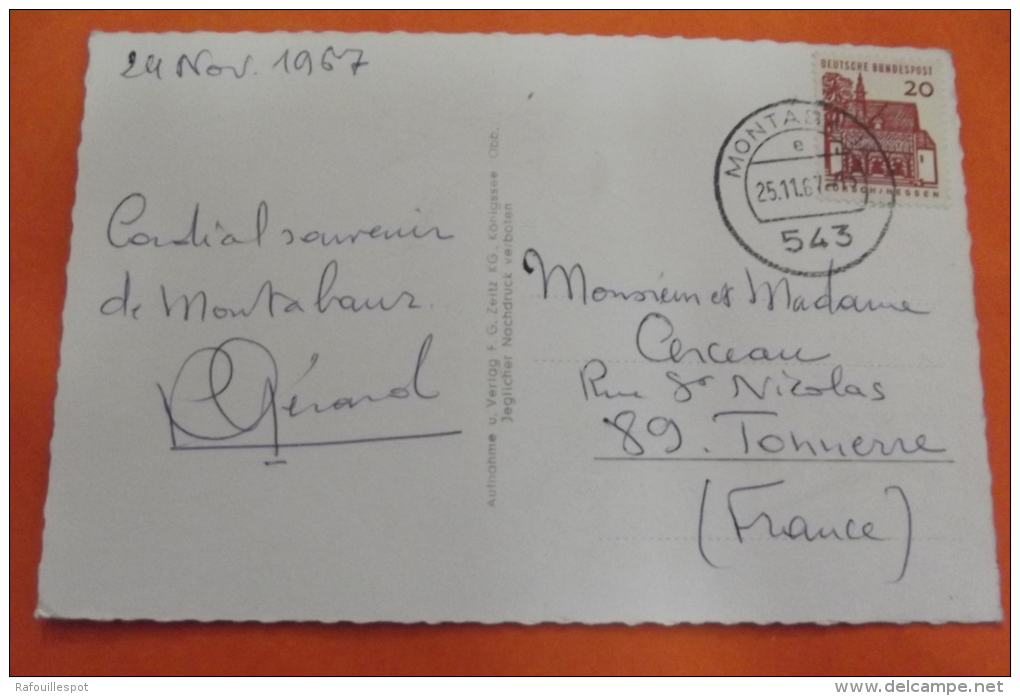 24 Nov. 1967
Cordial souvenir
de Montabaur.
Gérard
Aufnahme u. Verlag F. G. Zeitz KG., Königssee Obb.
Jeglicher Nachdruck verboten
DEUTSCHE BUNDESPOST
20
LORSCH/HESSEN
e
25.11.67
543
Monsieur et Madame
Cerceau
Rue St Nicolas
89. Tonnerre
(France)
Rafouillespot
delcampe.net